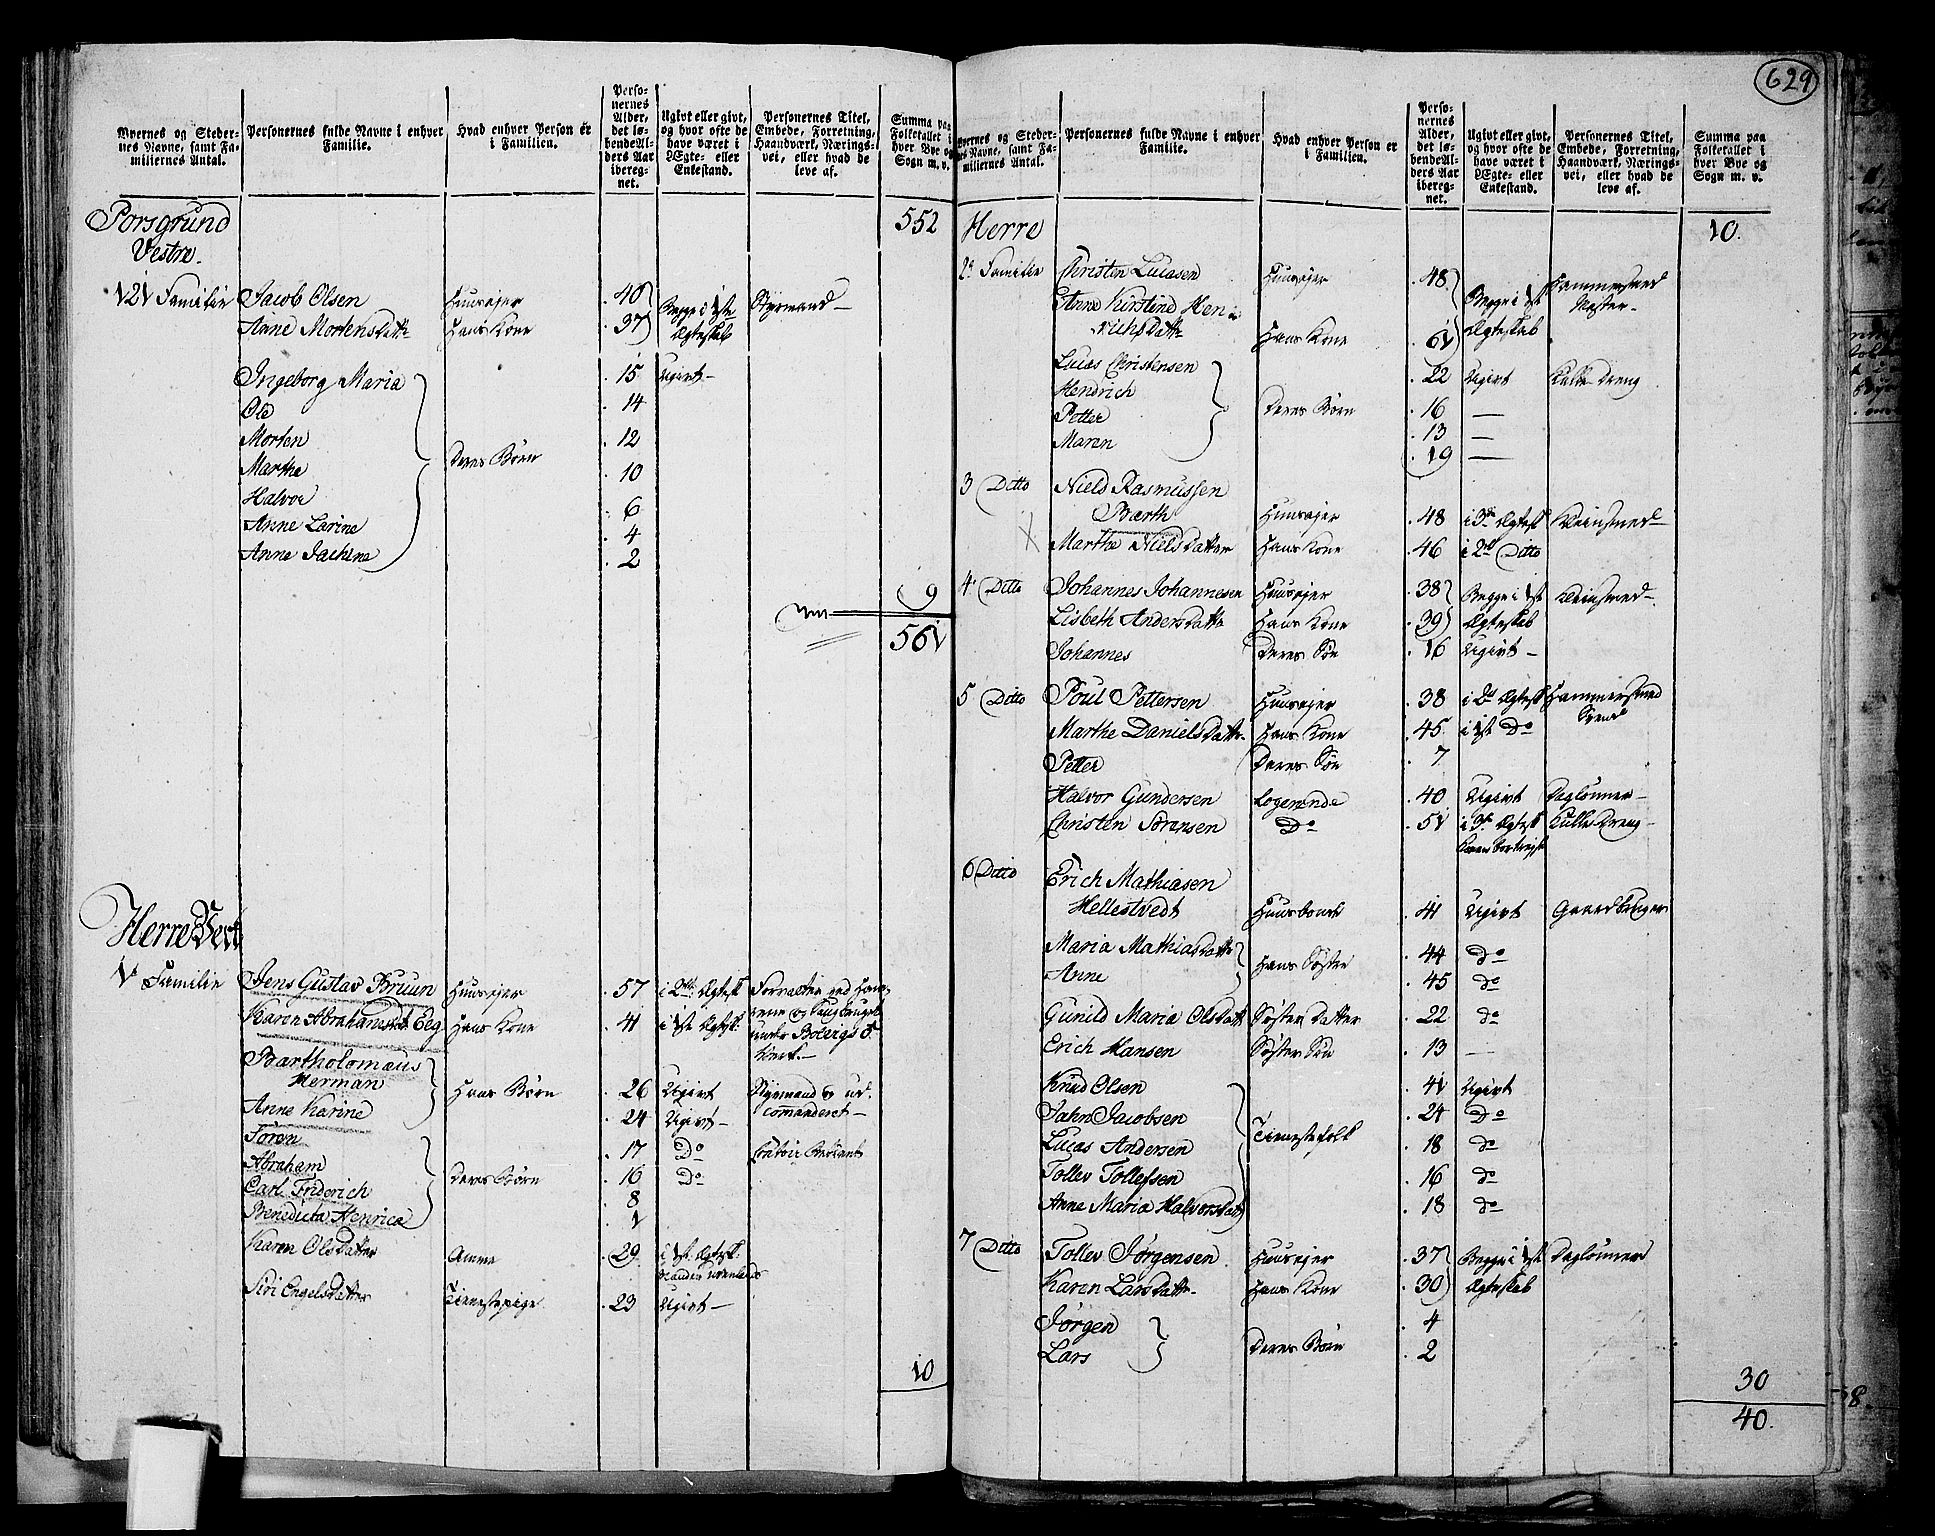 629
Byernes og Steder-
nes Navne, samt Fa-
miliernes Antal.
Personernes fulde Navne i enhver
Familie.
Hvad enhver Person er
i Familien.
Perso-
nernes
Alder,
det lø-
bende Al-
ders Aar
ibereg-
net.
Ugivt eller givt,
og hvor ofte de
have været i
Ægte- eller
Enkestand.
Personernes Titel,
Embede, Forretning,
Haandværk, Nærings-
vei, eller hvad de
leve af.
Summa paa
Folketallet i
hver Bye og
Sogn m. v.
Porsgrund 552
Vestre.
121 Familie Jacob Olsen Huusejer 40 Begge i 1ste Styrmand
Anne Mortensdatter Hans Kone 37 Ægteskab
Ingeborg Maria 15 Ugivt
Ole 14
Morten 12
Marthe Deres Børn 10
Halvor 6
Anne Larine 4
Anne Jachine 2
9
561
Herre Verk
1 Familie Jens Gustav Bruun Huusejer 57 i 2det Ægtesk Forvalter ved Ham-
Karen Abrahamsdat Eeg Hans Kone 41 i 1st Ægtsk: merne og Saugbruget
under Bolvigs
Verk.
Bartholomæus
Herman Hans Børn 26 Ugivt Styrmand og ud-
Anne Karine 24 Ugivt commanderet
Søren 17 Do Contoir Betient
Abraham Deres Børn 16 Do
Carl Friderich 8
Benedicta Henrica 1
Karen Olsdatter Amme 29 i 1st Ægtsk:
Manden udenlands
Siri Engelsdatter Tienestepige 23 Ugivt
10
Byernes og Steder-
nes Navne, samt Fa-
miliernes Antal.
Personernes fulde Navne i enhver
Familie.
Hvad enhver Person er
i Familien.
Perso-
nernes
Alder,
det lø-
bende Al-
ders Aar
ibereg-
net.
Ugivt eller givt,
og hvor ofte de
have været i
Ægte- eller
Enkestand.
Personernes Titel,
Embede, Forretning,
Haandværk, Nærings-
vei, eller hvad de
leve af.
Summa paa
Folketallet i
hver Bye og
Sogn m. v.
Herre 10.
2 Familie Christen Lucasen Huusejer 48 Begge i 1st Hammersmed
Anne Kirstine Hen- Mester
richsdatter Hans Kone 61 Ægteskab
Lucas Christensen 22 Ugivt Kulle Dreng
Hendrich Deres Børn 16 —
Petter 13 —
Maren 19 —
3 Ditto Niels Rasmussen
Barth Huusejer 48 i 3de Ægtesk Kleinsmed
Marthe Nielsdatter Hans Kone 46 i 2det Ditto
4 Ditto Johannes Johannesen Huusejer 38 Begge i 1st Kleinsmed
Lisbeth Andersdatter Hans Kone 39 Ægteskab
Johannes Deres Søn 16 Ugivt
5 Ditto Poul Pettersen Huusejer 38 i 2d Ægtesk Hammersmed
Svend
Marthe Danielsdatter Hans Kone 45 i 1st Do
Petter Deres Søn 7
Halvor Gundersen Logerende 40 Ugivt Daglønner
Christen Sørensen Do 51 i 3d Ægtesk Kulle Dreng
6 Ditto Erich Mathiasen
Hellestvedt Huusbond 41 Ugivt Gaardbruger
Maria Mathiasdatter Hans Søstre 44 do
Anne 45 do
Gunild Maria Olsdatt Søster Datter 22 do
Erich Hansen Søster Søn 13 —
Knud Olsen 41 Ugivt
Jahn Jacobsen 24 Do
Lucas Andersen Tienestefolk 18 do
Tollev Tollefsen 16 do
Anne Maria Halvorsdat 18 do
7 Ditto Tollev Jørgensen Huusejer 37 Begge i 1st Daglønner
Karen Larsdatter Hans Kone 30 Ægteskab
Jørgen 4
Lars Deres Børn 2
30
40.